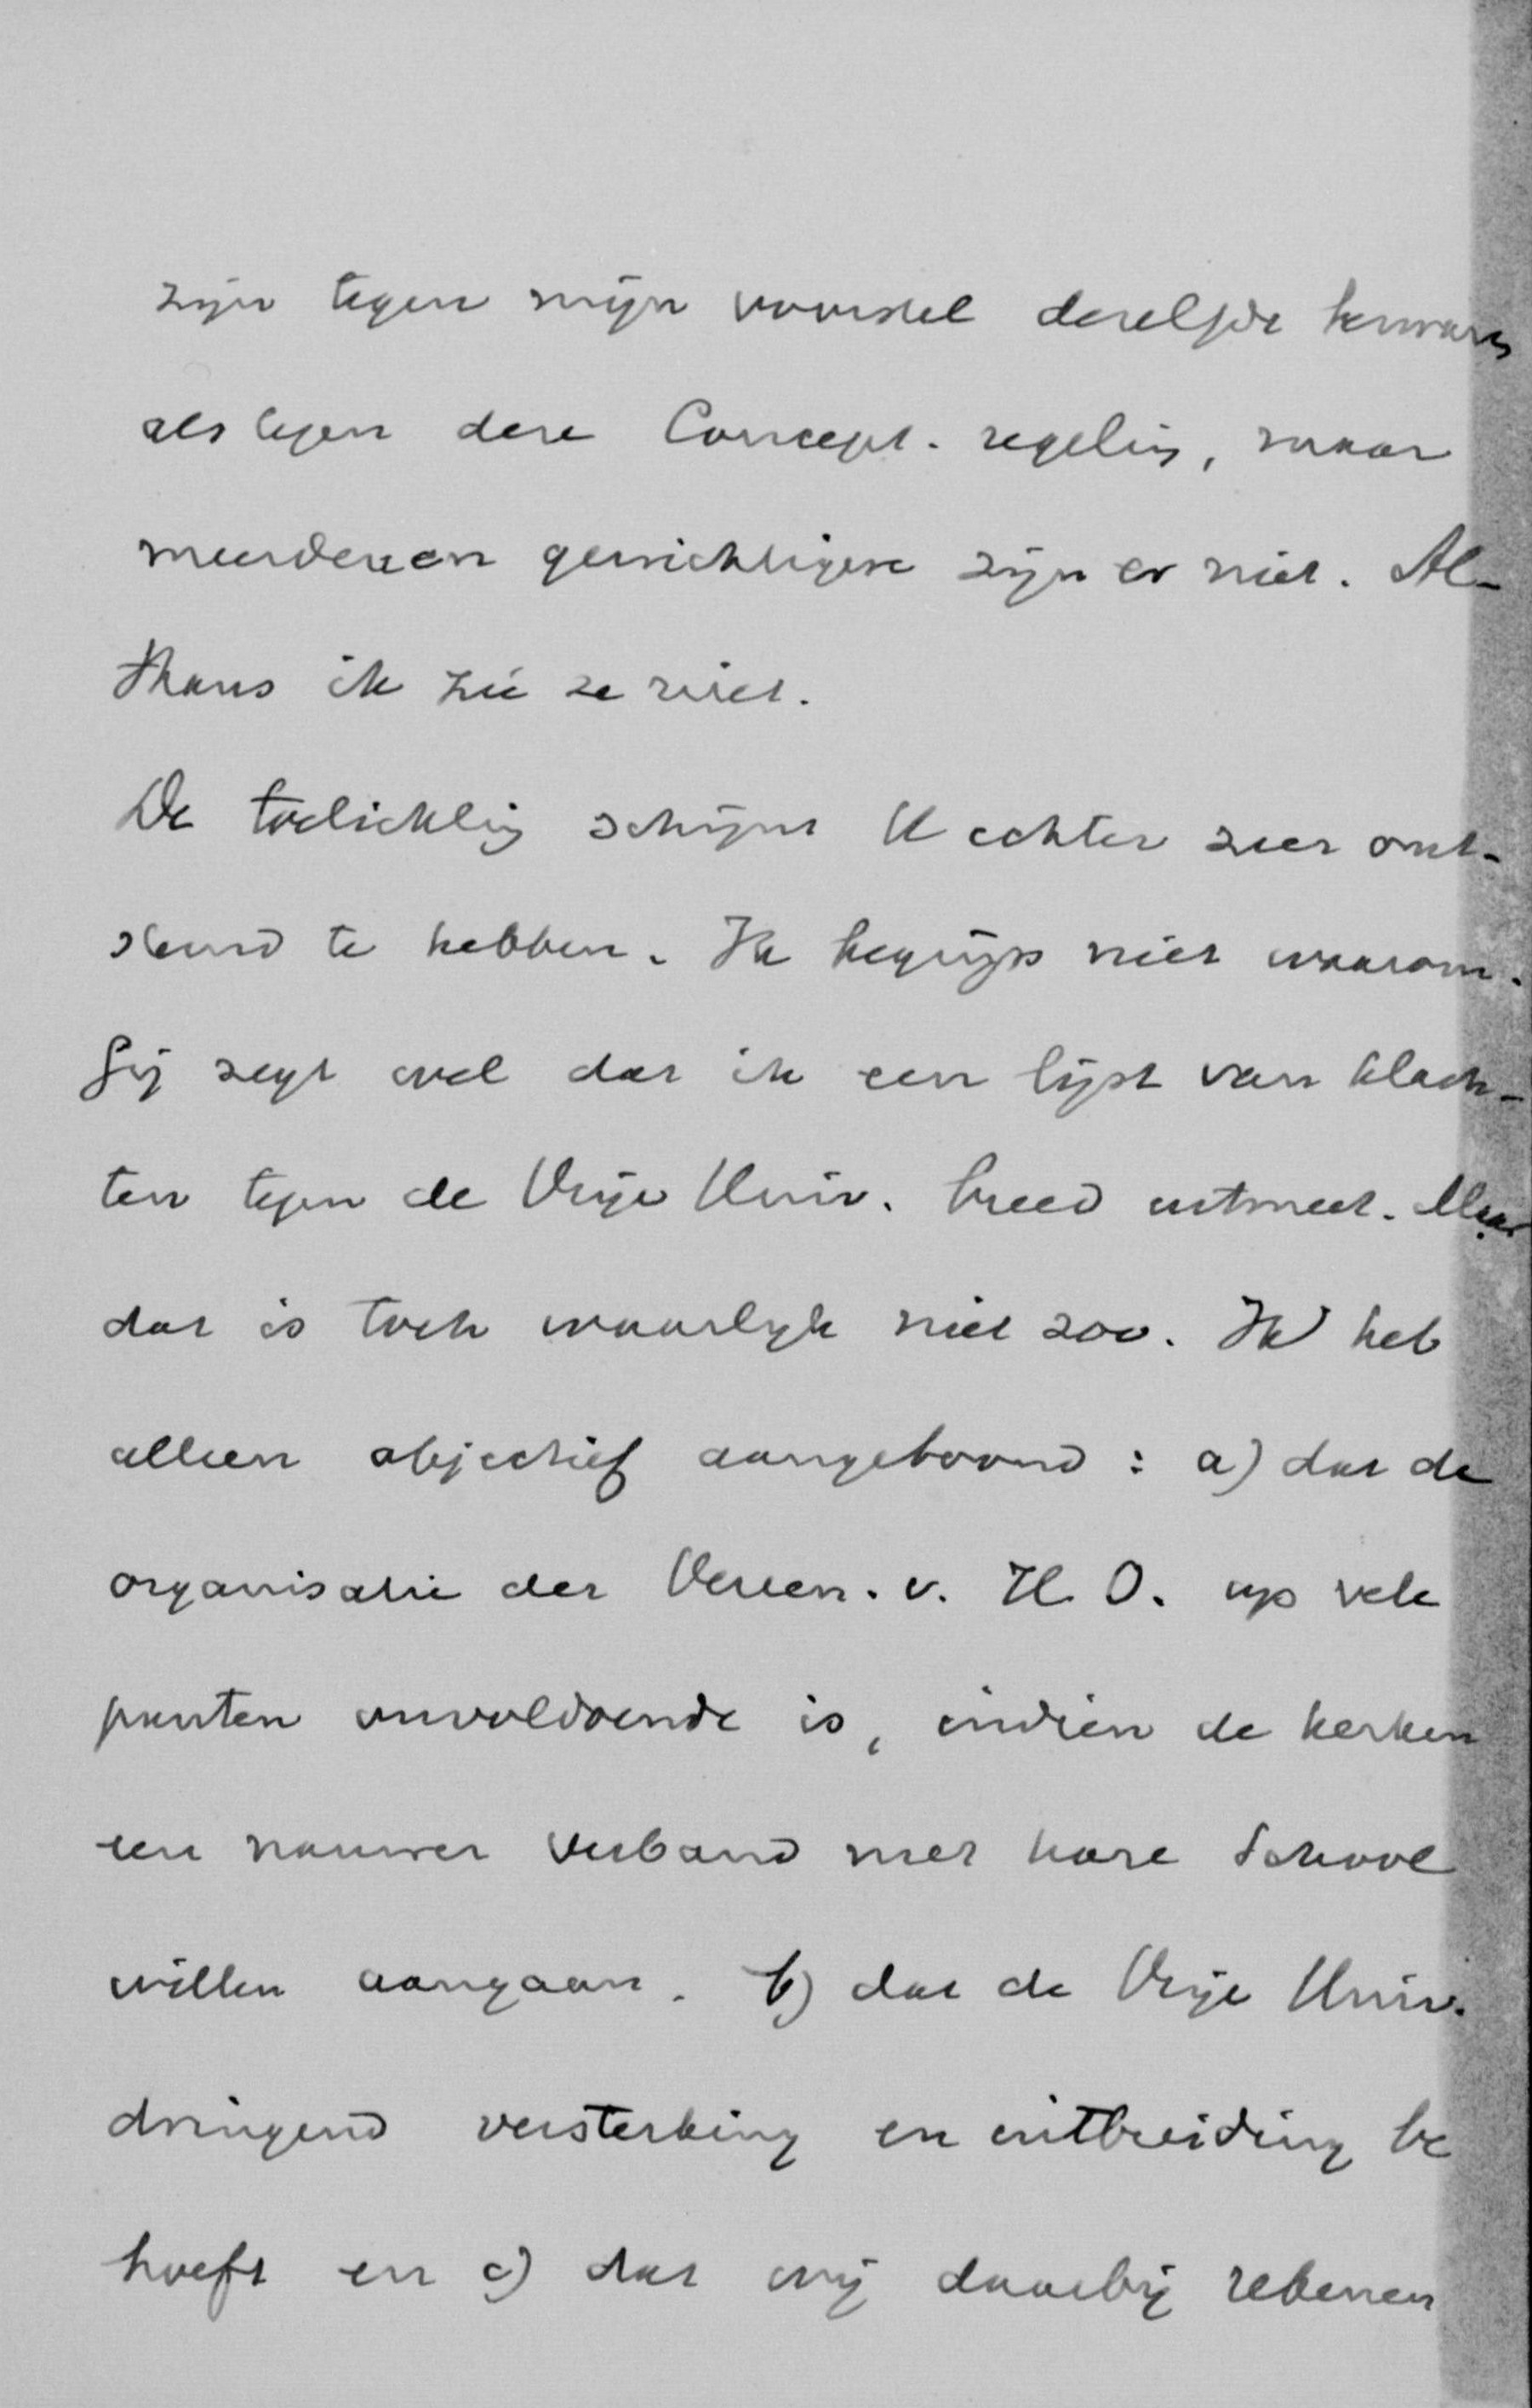 zijn tegen mijn voorstel dezelfde bezwaren
als tegen deze Concept-regeling, maar
meerdere en gewichtigere zijn er niet. Al-
thans ik zie ze niet.
De toelichting schijnt U echter zeer ont-
stemd te hebben. Ik begrijp niet waarom.
Gij zegt wel dat ik een lijst van klach-
ten tegen de Vrije Univ. breed uitmeet. Maar
dat is toch waarlijk niet zoo. Ik heb
alleen objectief aangetoond: a) dat de
organisatie der Vereen. v. H. O. op vele
punten onvoldoende is, indien de kerken
een nauwer verband met hare School
willen aangaan. b) dat de Vrije Univ.
dringend versterking en uitbreiding be
hoeft en c) dat wij daarbij rekenen